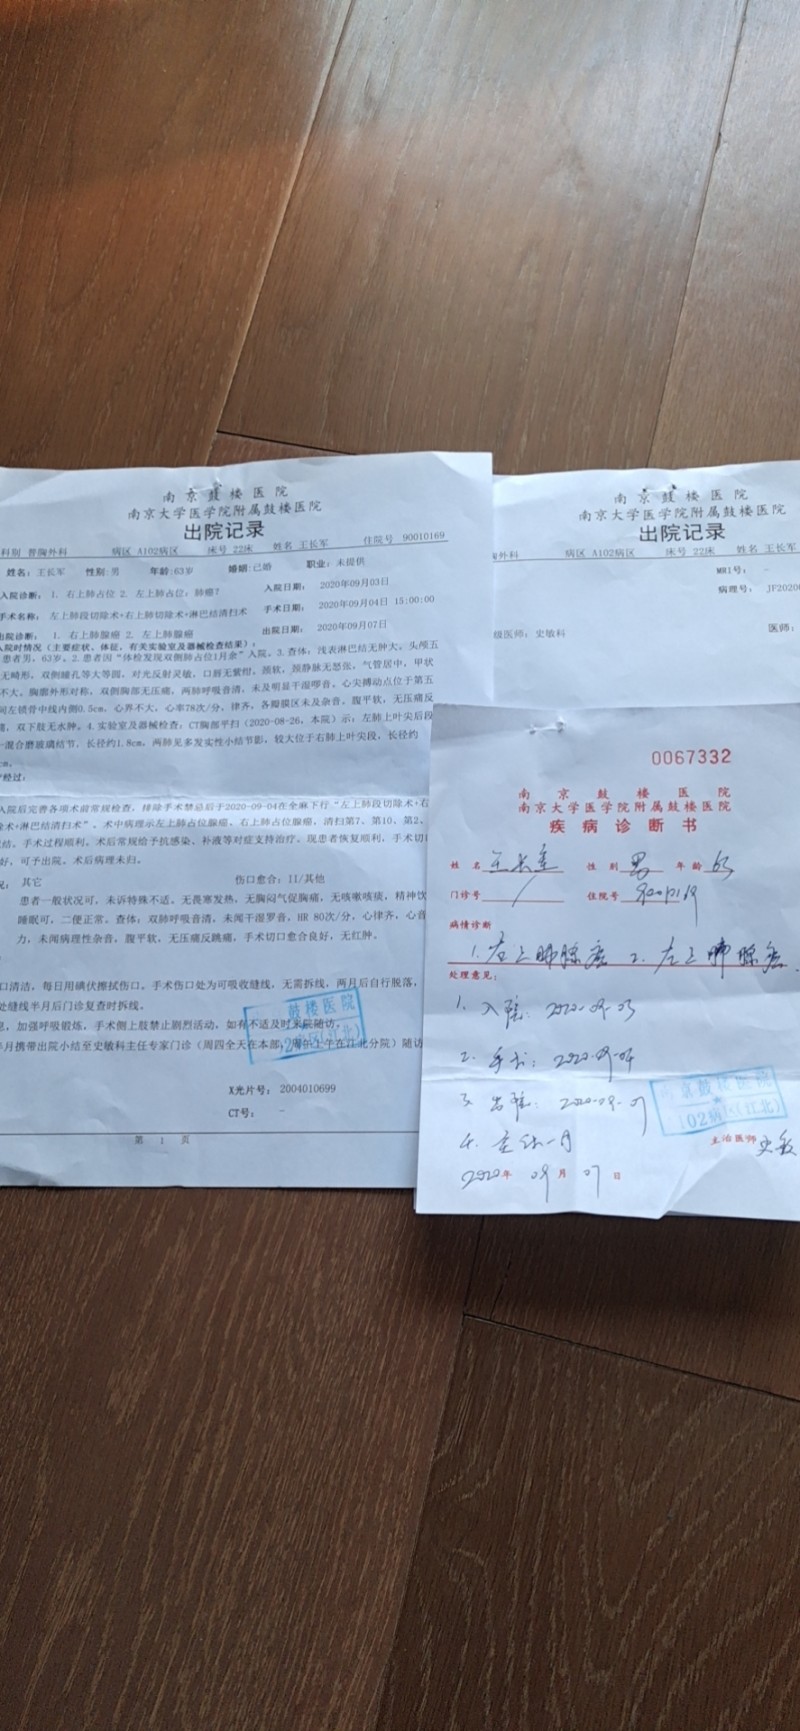 南京鼓楼医院
南京大学医学院附属鼓楼医院
出院记录
科别 普胸外科 病区 A102病区 床号 22床 姓名 王长军 住院号 90010169
姓名：王长军 性别:男 年龄:63岁 婚姻:已婚 职业:未提供
入院诊断： 1. 右上肺占位 2. 左上肺占位：肺癌？ 入院日期： 2020年09月03日
手术名称： 左上肺段切除术+右上肺切除术+淋巴结清扫术 手术日期： 2020年09月04日 15:00:00
出院诊断： 1. 右上肺腺癌 2. 左上肺腺癌 出院日期： 2020年09月07日
入院时情况（主要症状、体征，有关实验室及器械检查结果）：
患者男，63岁。2.患者因“体检发现双侧肺占位1月余”入院。3.查体：浅表淋巴结无肿大。头颅五
无畸形，双侧瞳孔等大等圆，对光反射灵敏，口唇无紫绀，颈软，颈静脉无怒张，气管居中，甲状
不大。胸廓外形对称，双侧胸部无压痛，两肺呼吸音清，未及明显干湿啰音，心尖搏动点位于第五
间左锁骨中线内侧0.5cm，心界不大，心率78次/分，律齐，各瓣膜区未及杂音。腹平软，无压痛反
痛，双下肢无水肿。4.实验室及器械检查：CT胸部平扫（2020-08-26，本院）示，左肺上叶尖后段
一混合磨玻璃结节，长径约1.8cm，两肺见多发实性小结节影，较大位于右肺上叶尖段，长径约
cm。
经过：
入院后完善各项术前常规检查，排除手术禁忌后于2020-09-04在全麻下行“左上肺段切除术+右
术+淋巴结清扫术”。术中病理示左上肺占位腺癌、右上肺占位腺癌，清扫第7、第10、第2、
结。手术过程顺利。术后常规给予抗感染、补液等对症支持治疗。现患者恢复顺利，手术切
好，可予出院。术后病理未归。
况： 其它 伤口愈合：II/其他
患者一般状况可，未诉特殊不适。无畏寒发热，无胸闷气促胸痛，无咳嗽咳痰，精神饮
睡眠可。二便正常。查体：双肺呼吸音清，未闻干湿罗音，HR 80次/分，心律齐，心音
力，未闻病理性杂音，腹平软，无压痛反跳痛，手术切口愈合良好，无红肿。
口清洁，每日用碘伏擦拭伤口。手术伤口处为可吸收缝线，无需拆线，两月后自行脱落，
处缝线半月后门诊复查时拆线。
息，加强呼吸锻炼，手术侧上肢禁止剧烈活动，如有不适及时来院随访。
半月携带出院小结至史敏科主任专家门诊（周四全天在本部，周一上午在江北分院）随访
鼓楼医院
2病区(江北)
X光片号： 2004010699
CT号： -
第 1 页
南京鼓楼医院
南京大学医学院附属鼓楼医院
出院记录
胸外科 病区 A102病区 床号 22床 姓名 王长军
MRI号： -
病理号： JP2020
级医师：史敏科
医师：
0067332
南京鼓楼医院
南京大学医学院附属鼓楼医院
疾病诊断书
姓名 王长军 性别 男 年龄 63
门诊号 / 住院号 90010169
病情诊断
1. 右上肺腺癌 2. 左上肺腺癌
处理意见：
1. 入院：2020-09-03
2. 手术：2020-09-04
3. 出院：2020-09-07
4. 全休一月
京鼓楼医院
102病区(江北)
主治医师 史敏
2020年 09月 07日